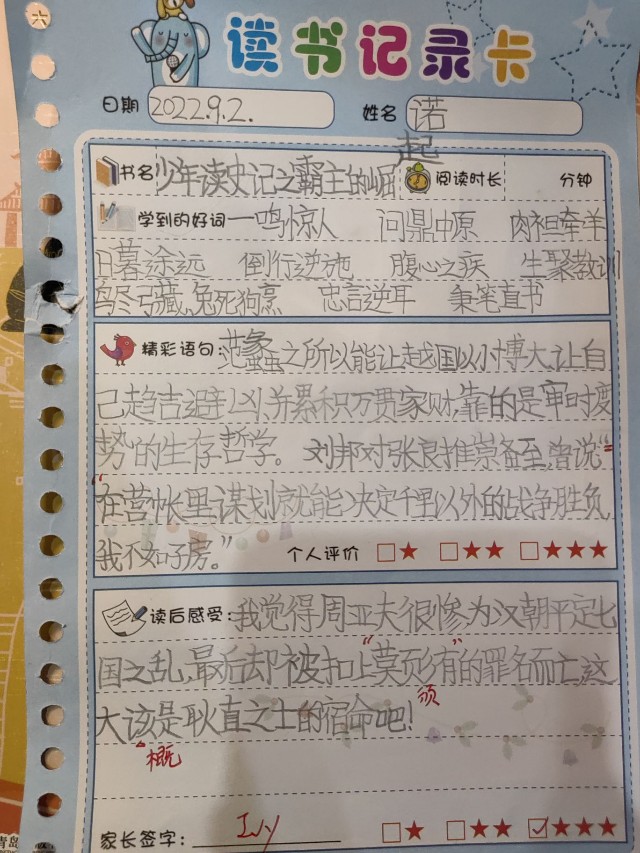 六
读书记录卡
日期 2022.9.2. 姓名 诺
起
书名 少年读史记之霸主的崛 阅读时长 分钟
学到的好词 一鸣惊人 问鼎中原 肉袒牵羊
日暮途远 倒行逆施 腹心之疾 生聚教训
鸟尽弓藏,兔死狗烹 忠言逆耳 秉笔直书
精彩语句: 范蠡之所以能让越国以小博大,让自
己趋吉避凶,并累积万贯家财,靠的是审时度
势的生存哲学。 刘邦对张良推崇备至,曾说“
“在营帐里谋划就能决定千里以外的战争胜负,
我不如子房。”
个人评价 ★ ★★ ★★★
读后感受: 我觉得周亚夫很惨,为汉朝平定七
国之乱,最后却被扣上“莫页有”的罪名而亡,这
须
大该是耿直之士的宿命吧!
概
家长签字: Ivy ★ ★★ ★★★
青岛